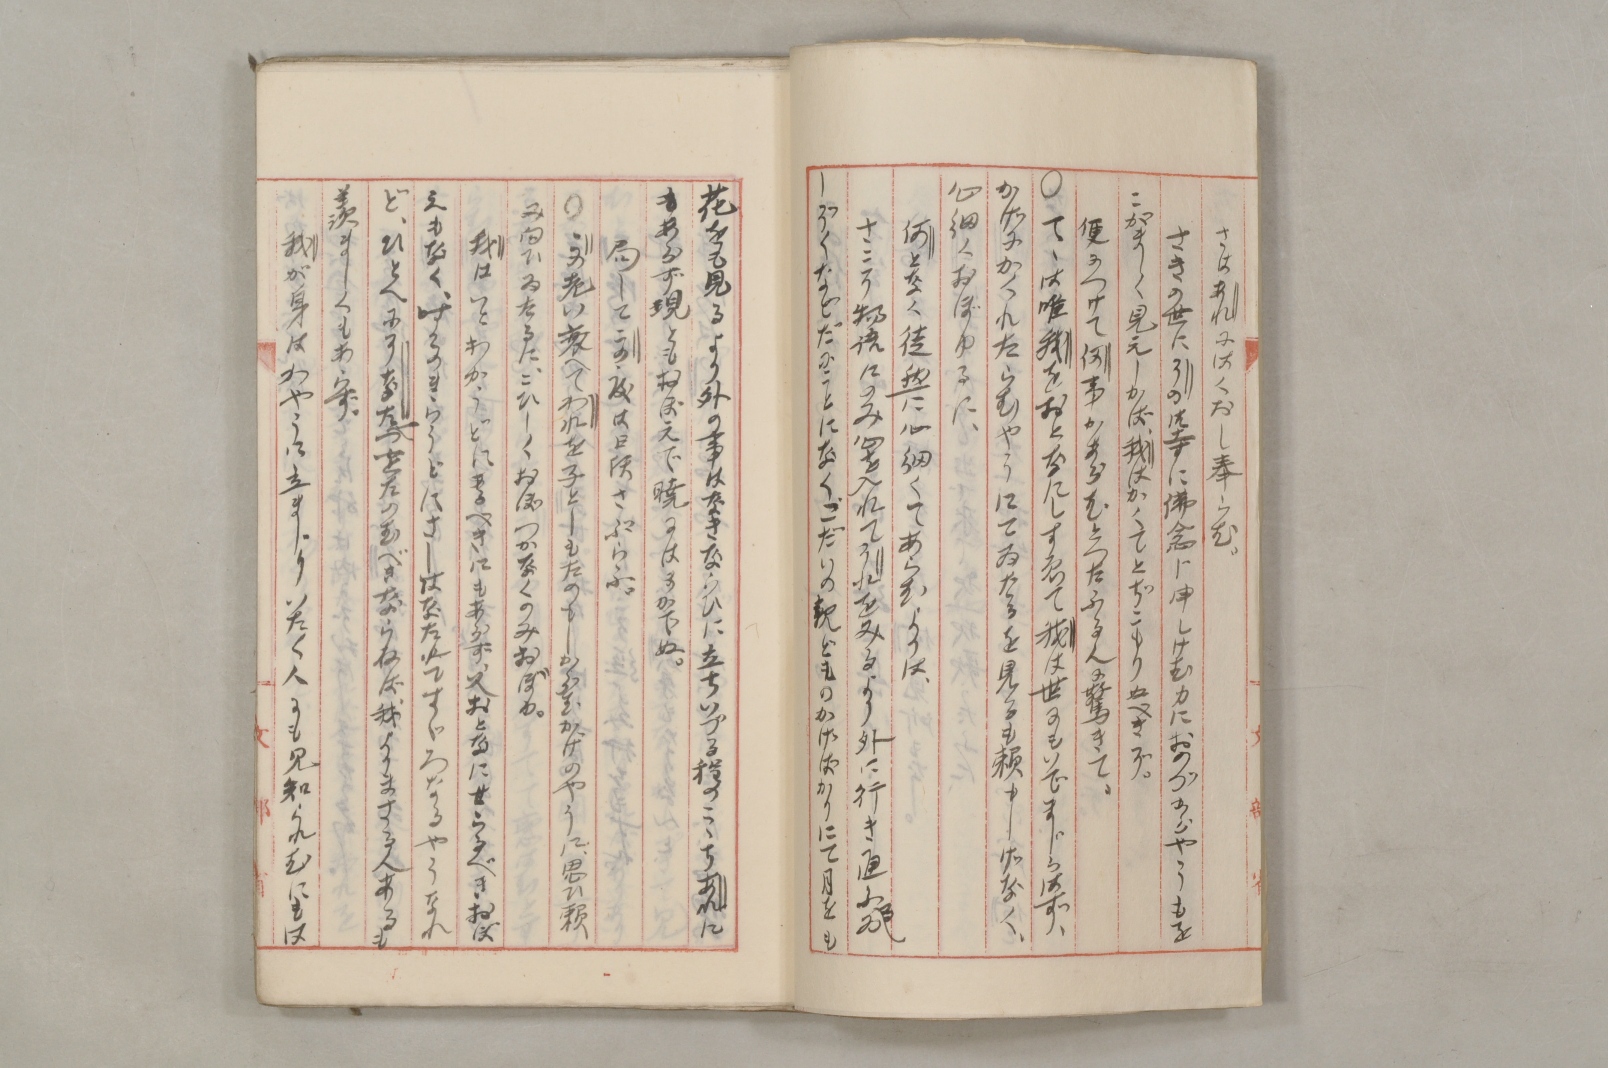 さはあれにはくおし奉らむ。
さきの世に引の御寺に佛念に申しけむ力におのづからやうもを
こがましく見えしかば、我はかくてとぢこもりぬべきぞ。
便につけて何事かあらむとつたふる人に驚きて。
○てゝは唯我をおとなにしすゑて我は世にもいでまじらはず、
かげにかくれたらむやうにてゐたるを見るも頼もしげなく、
心細くおぼゆるに、
何となく徒然に心細くてあらむよりは、
十ころ物語にのみ心を入れてわれをみるより外に行き通ふる
しぞくなどだにことになくこだいの親どものかげばかりにて月をも
花をも見るより外の事はなきならひに立ちいづる程のこゝちあれに
もあらず現ともおぼえで曉にはまかでぬ。
局してこの度は日頃さぶらふ。
○この老い衰へてわれを子としもたのもしからむかげのやうに思ひ頼
み向ひゐたるに、こひしくおぼつかなくのみおぼゆ。
我はいとわかうどにあるべきにもあらず、又おとなにせらるべきおぼ
えもなく、時々のまらうどにさしはなたれてすゞろなるやうなれ
ど、ひとへにそなた一つをたのむべきならねば我よりまさる人あるも
羨ましくもあらず。
我が身はかやうに立まじりいたく人にも見知られむにもは
文部省
文部省